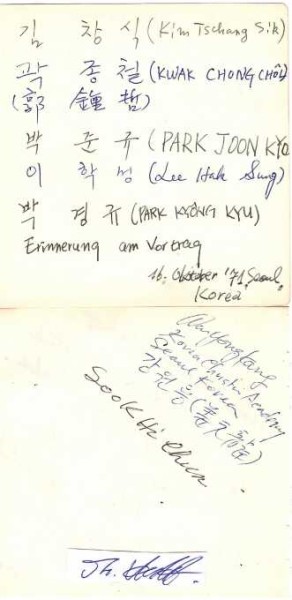 김 창 식 (Kim Tschang Sik)
곽 종 철 (KWAK CHONG CHÔL)
(郭 鐘 哲)
박 준 규 (PARK JOON KYO
이 학 성 (Lee Hak Sung)
박 경 규 (PARK KYONG KYU)
Erinnerung am Vortrag
16. Oktober '71, Seoul,
Korea
Korea Christian Academy
Seoul Korea
강원용
Sook Hi Chun
Th.